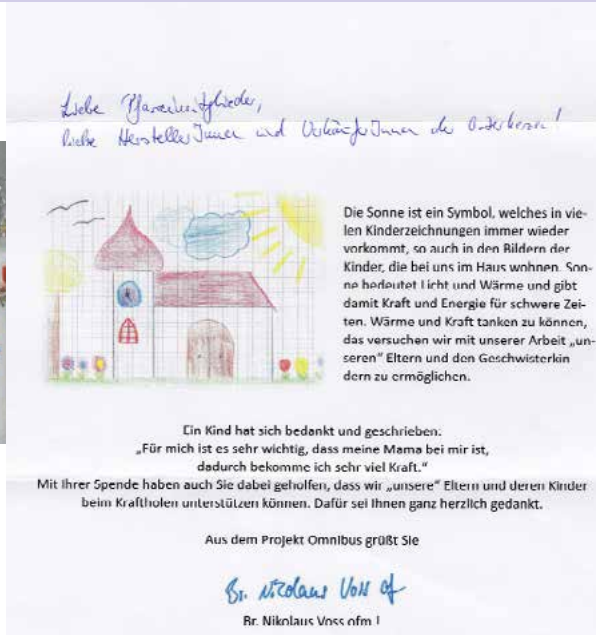 Liebe Pfarreimitglieder,
liebe HerstellerInnen und VerkäuferInnen der Osterkerzen!
Die Sonne ist ein Symbol, welches in vie-
len Kinderzeichnungen immer wieder
vorkommt, so auch in den Bildern der
Kinder, die bei uns im Haus wohnen. Son-
ne bedeutet Licht und Wärme und gibt
damit Kraft und Energie für schwere Zei-
ten. Wärme und Kraft tanken zu können,
das versuchen wir mit unserer Arbeit „un-
seren“ Eltern und den Geschwisterkin
dern zu ermöglichen.
Ein Kind hat sich bedankt und geschrieben:
„Für mich ist es sehr wichtig, dass meine Mama bei mir ist,
dadurch bekomme ich sehr viel Kraft.“
Mit Ihrer Spende haben auch Sie dabei geholfen, dass wir „unsere“ Eltern und deren Kinder
beim Kraftholen unterstützen können. Dafür sei Ihnen ganz herzlich gedankt.
Aus dem Projekt Omnibus grüßt Sie
Br. Nikolaus Voss of
Br. Nikolaus Voss ofm